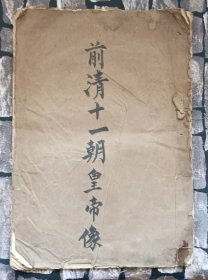 前清十一朝皇帝像